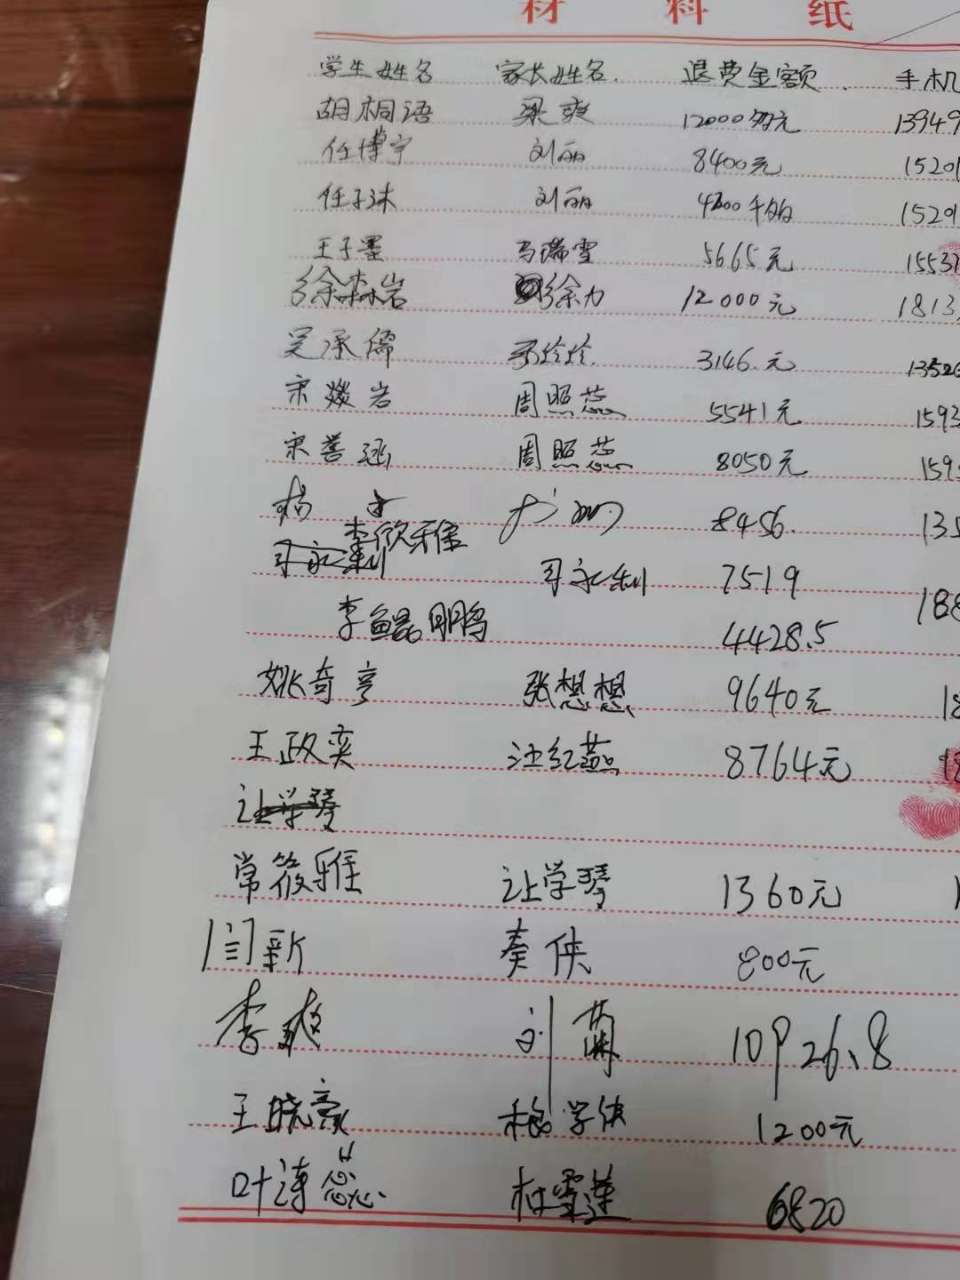 材料纸
学生姓名 家长姓名. 退费金额. 手机
胡桐语 梁爽 12000多元 13949
任博宁 刘丽 8400元 15201
任子沐 刘丽 4200 15291
王子墨 马瑞雪 5665元 1553
徐森岩 徐力 12000元 1813
吴承儒 3146.元 13526
宋燚岩 周照蕊 5541元 1593
宋善涵 周照蕊 8050元 159
杨 8456. 135
李欣雅
司永利 司永利 7519 188
李鲲鹏 4428.5
姚奇亨 张想想 9640元 18
王政奕 汪红燕 8764元 18
让学琴
常筱雅 让学琴 1360元 1
闫新 秦侠 800元
李爽 刘兰 10926.8
王晓豪 学侠 1200元
叶涛蕊 杜雪莲 6820